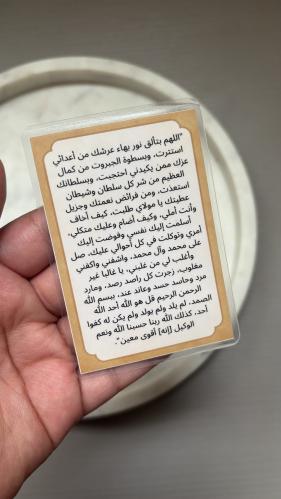 "اللهم بتألق نور بهاء عرشك من أعدائي
استترت، وبسطوة الجبروت من كمال
عزك ممن يكيدني احتجبت، وبسلطانك
العظيم من شر كل سلطان وشيطان
استعذت، ومن فرائض نعمتك وجزيل
عطيتك يا مولاي طلبت، كيف أخاف
وأنت أملي، وكيف أضام وعليك متكلي،
أسلمت إليك نفسي وفوضت إليك
أمري وتوكلت في كل أحوالي عليك، صل
على محمد وآل محمد، واشفني واكفني
وأغلب لي من غلبني، يا غالبا غير
مغلوب، زجرت كل راصد رصد، ومارد
مرد وحاسد حسد وعاند عند، ببسم الله
الرحمن الرحيم قل هو الله أحد الله
الصمد، لم يلد ولم يولد ولم يكن له كفوا
أحد، كذلك الله ربنا حسبنا الله ونعم
الوكيل [إنه] أقوى معين".